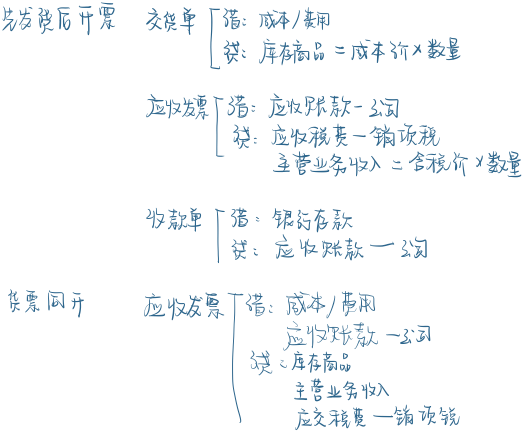 先发货后开票 交货单 借: 成本/费用
贷: 库存商品 = 成本价×数量
应收发票 借: 应收账款-公司
贷: 应收税费-销项税
主营业务收入 = 含税价×数量
收款单 借: 银行存款
贷: 应收账款-公司
货票同开 应收发票 借: 成本/费用
应收账款-公司
贷: 库存商品
主营业务收入
应交税费-销项税